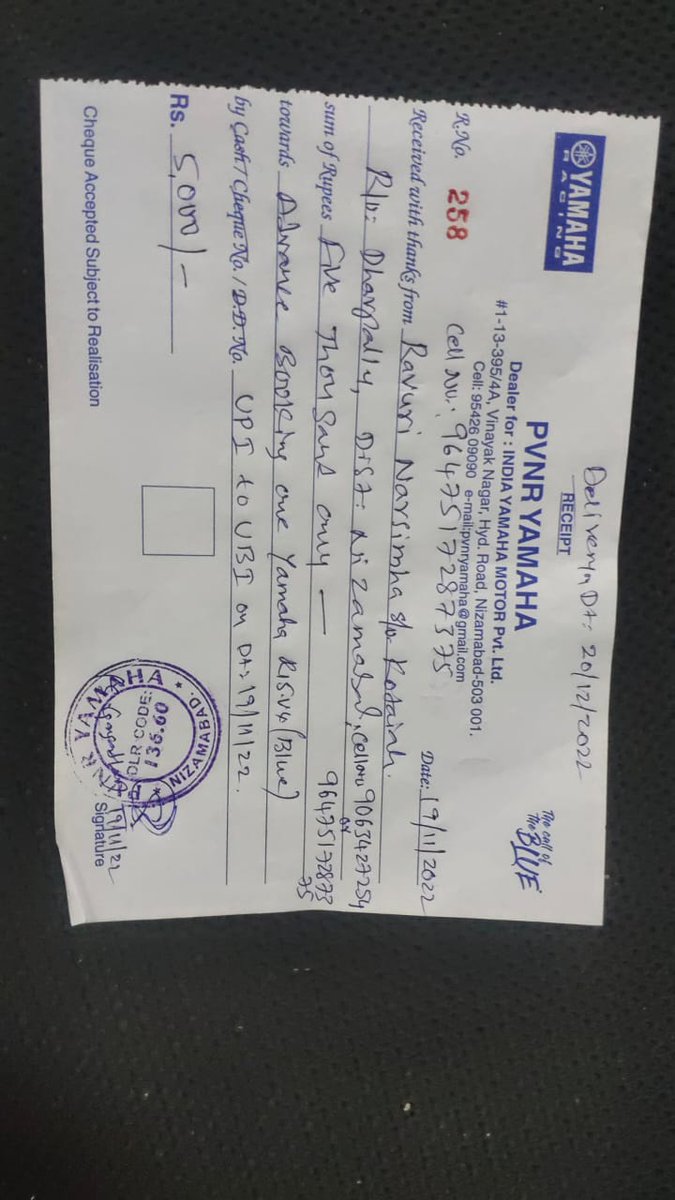 Delivery Dt: 20/12/2022
YAMAHA
RACING
RECEIPT
The call of
the BLUE
PVNR YAMAHA
Dealer for : INDIA YAMAHA MOTOR Pvt. Ltd.
#1-13-395/4A, Vinayak Nagar, Hyd. Road, Nizamabad-503 001.
Cell: 95426 09090 e-mail:pvnryamaha@gmail.com
R.No. 258 Cell No: 9647517287375 Date: 19/11/2022
Received with thanks from Ravuri Narsimha s/o Kodaiah.
R/o: Dharpally, Dist: Nizamabad, Cell no 9063427254
or
sum of Rupees Five Thousand only — 96475172873
75
towards Advance Booking one Yamaha R15V4 (Blue)
by Cash / Cheque No. / D.D. No. UPI to UBI on Dt: 19/11/22.
Rs. 5,000/-
NIZAMABAD.
DLR CODE:
PVNR YAMAHA
19/11/22
Signature
Cheque Accepted Subject to Realisation